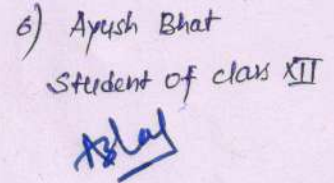 6) Ayush Bhat
Student of class XII